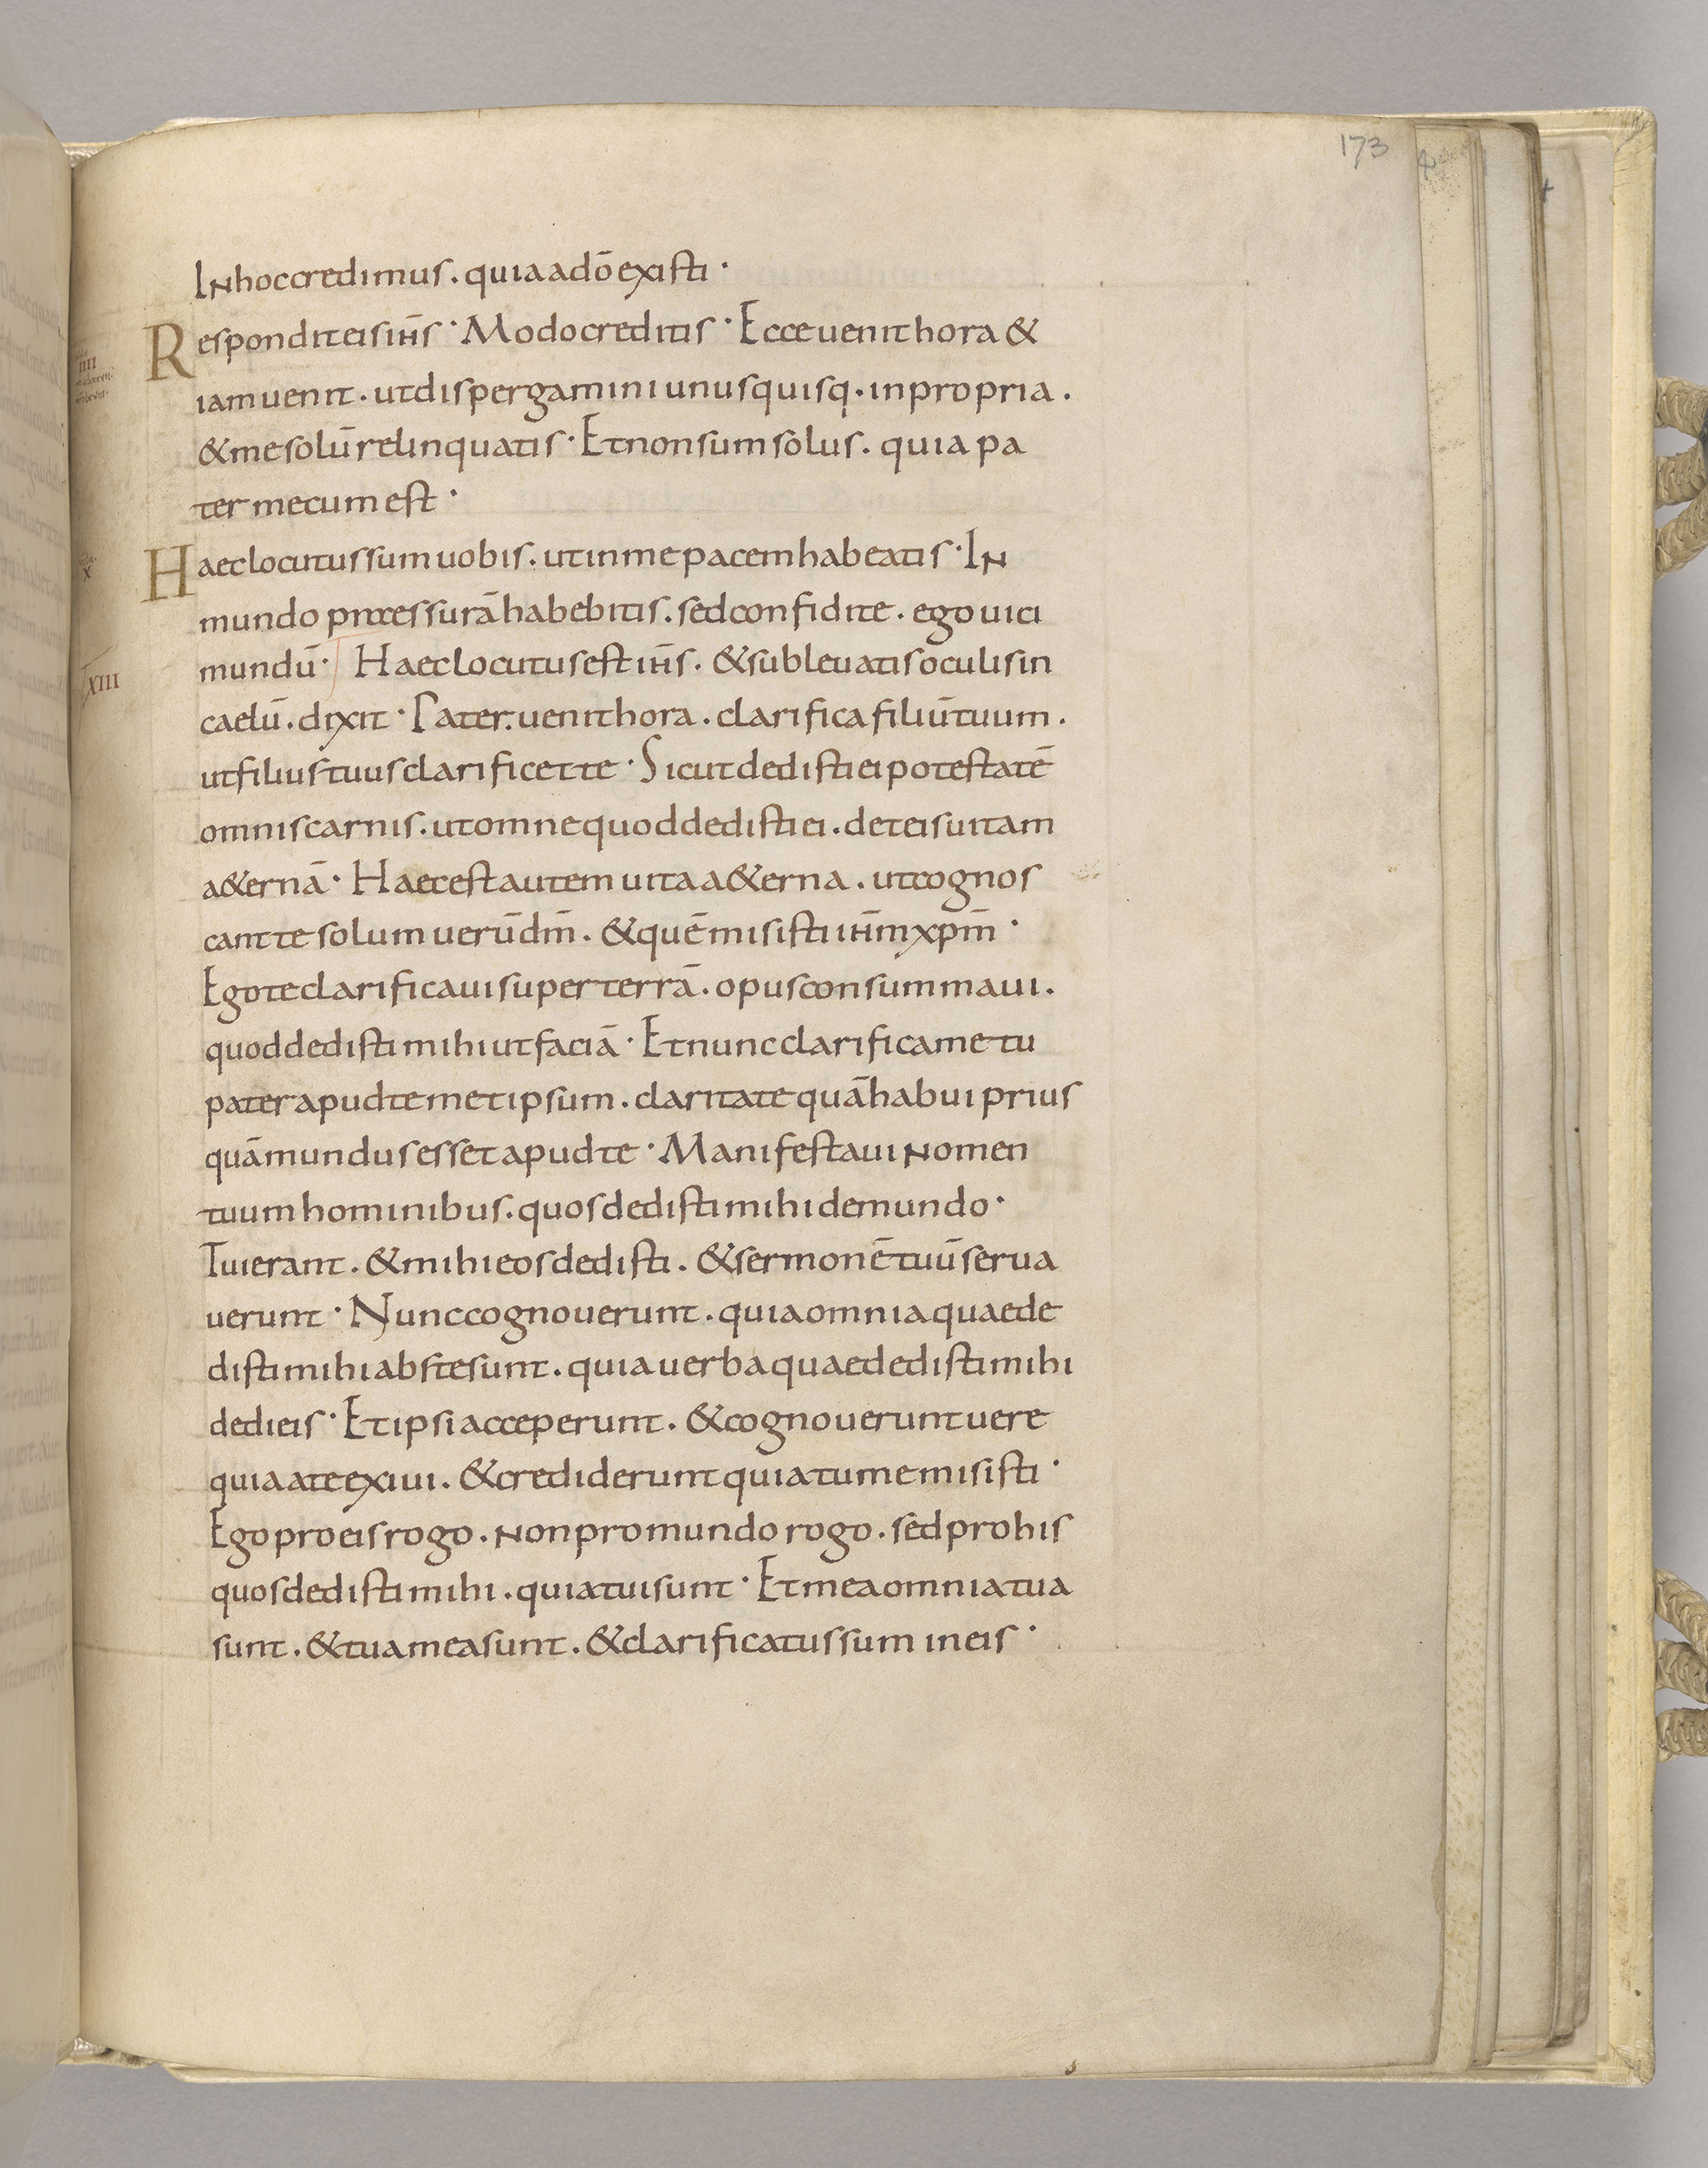 173
INhoc credimus. quia ado̅ existi·
Respondit eis ih̅s· Modo creditis· Ecce uenit hora &
iam uenit. ut dispergamini unusquisq· in propria.
& me solu̅ relinquatis· Et non sum solus. quia pa
ter mecum est·
Haec locutus sum uobis. ut in me pacem habeatis· IN
mundo praessura̅ habebitis. sed confidite. ego uici
mundu̅· Haec locutus est ih̅s. & subleuatis oculis in
XIII
caelu̅. dixit· Pater. uenit hora. clarifica filiu̅ tuum.
ut filius tuus clarificet te· Sicut dedisti ei potestate̅
omnis carnis. ut omne quod dedisti ei. det eis uitam
a&erna̅· Haec est autem uita a&erna. ut cognos
cant te solum ueru̅ dm̅. & que̅ misisti ih̅m xpm̅·
Ego te clarificaui super terra̅. opus consummaui.
quod dedisti mihi ut facia̅· Et nunc clarifica me tu
pater apud temetipsum. claritate qua̅ habui prius
qua̅ mundus esset apud te· Manifestaui Nomen
tuum hominibus. quos dedisti mihi de mundo·
Tui erant. & mihi eos dedisti. & sermone̅ tuu̅ serua
uerunt· Nunc cognouerunt. quia omnia quae de
disti mihi abs te sunt. quia uerba quae dedisti mihi
dedi eis· Et ipsi acceperunt. & cognouerunt uere
quia a te exiui. & crediderunt quia tu me misisti·
Ego pro eis rogo. Non pro mundo rogo. sed pro his
quos dedisti mihi. quia tui sunt· Et mea omnia tua
sunt. & tua mea sunt. & clarificatus sum in eis·